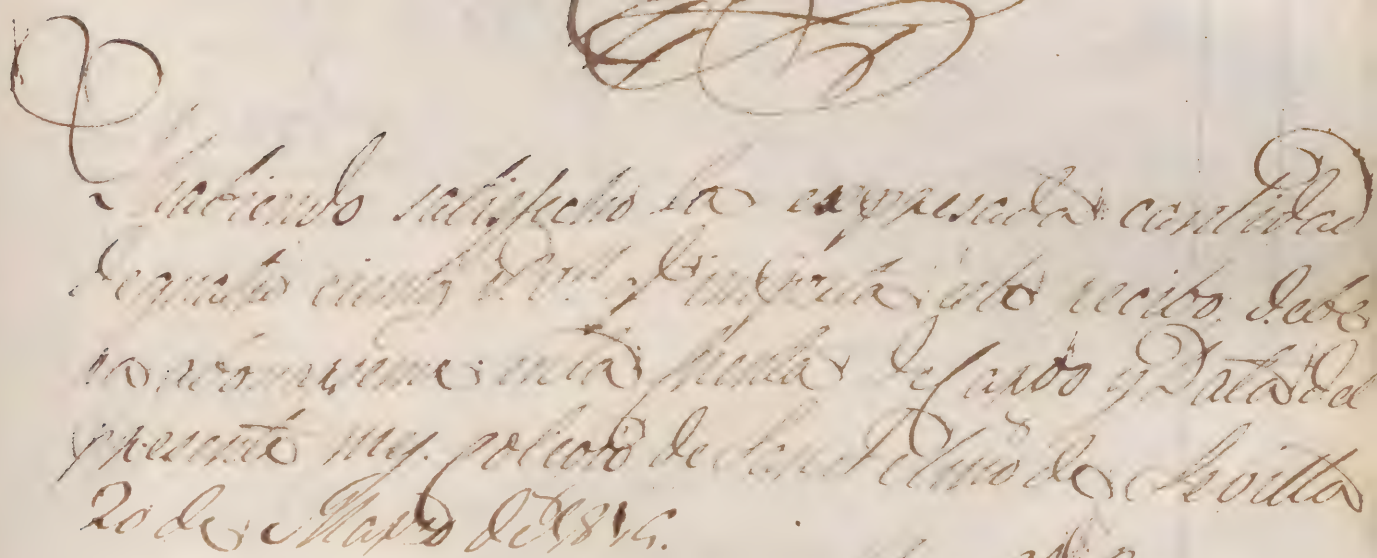 Habiendo satisfecho la expresada cantidad
de quatro cientos r.s v.n q.e importa este recibo, debe
ra en la Cuenta de Cargo y Data del
presente mes. Colegio de San Telmo de Sevilla
20 de Marzo de 1816.